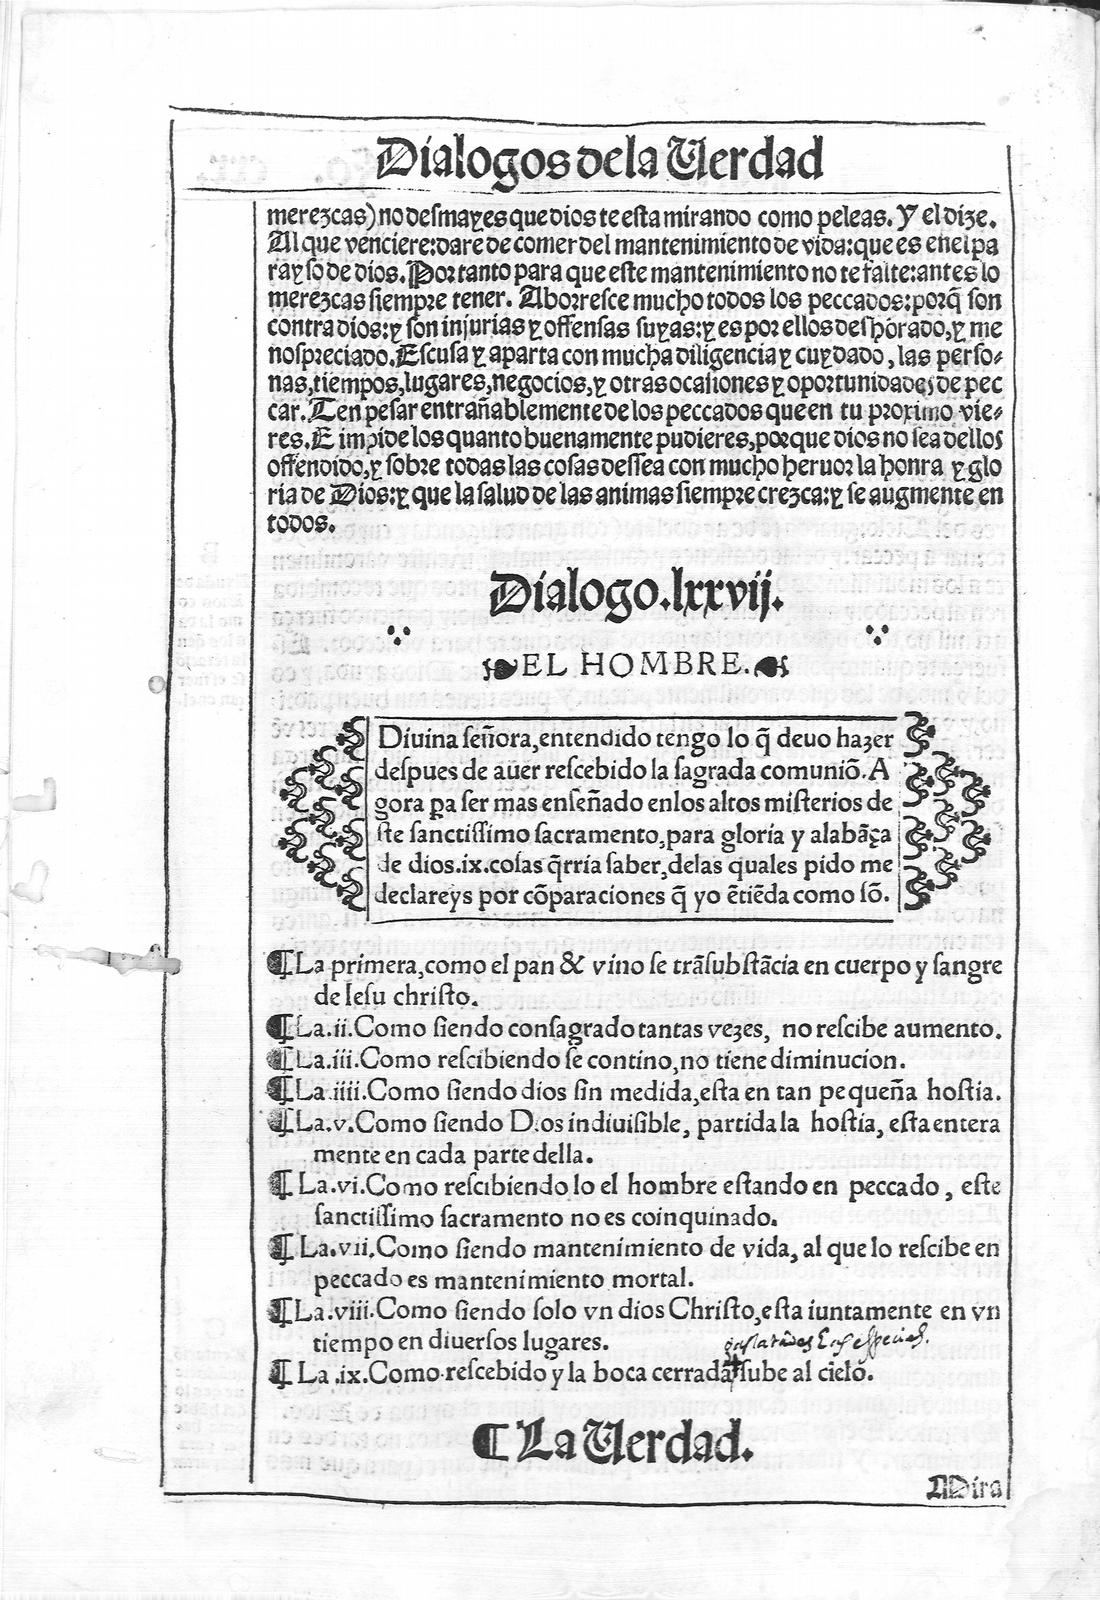 Dialogos dela Uerdad
merezcas) no desmayes que dios te esta mirando como peleas. Y el dize.
Al que venciere: dare de comer del mantenimiento de vida: que es enel pa
rayso de dios. Por tanto para que este mantenimiento no te falte: antes lo
merezcas siempre tener. Aborresce mucho todos los peccados: porq̃ son
contra dios: y son injurias y offensas suyas: y es por ellos deshõrado, y me
nospreciado. Escusa y aparta con mucha diligencia y cuydado, las perso-
nas, tiempos, lugares, negocios, y otras ocasiones y oportunidades de pec
car. Ten pesar entrañablemente de los peccados que en tu proximo vie-
res. E impide los quanto buenamente pudieres, porque dios no sea dellos
offendido, y sobre todas las cosas dessea con mucho heruor la honra y glo
ria de Dios: y que la salud de las animas siempre crezca: y se augmente en
todos.
Dialogo. lxxvij.
EL HOMBRE.
Diuina señora, entendido tengo lo q̃ deuo hazer
despues de auer rescebido la sagrada comuniõ. A
gora pa ser mas enseñado enlos altos misterios de
ste sanctissimo sacramento, para gloria y alabãça
de dios. ix. cosas q̃rria saber, delas quales pido me
declareys por cõparaciones q̃ yo ẽtiẽda como sõ.
¶ La primera, como el pan & vino se trãsubstãcia en cuerpo y sangre
de Iesu christo.
¶ La. ii. Como siendo consagrado tantas vezes, no rescibe aumento.
¶ La. iii. Como rescibiendo se contino, no tiene diminucion.
¶ La. iiii. Como siendo dios sin medida, esta en tan pequeña hostia.
¶ La. v. Como siendo Dios indiuisible, partida la hostia, esta entera
mente en cada parte della.
¶ La. vi. Como rescibiendo lo el hombre estando en peccado, este
sanctissimo sacramento no es coinquinado.
¶ La. vii. Como siendo mantenimiento de vida, al que lo rescibe en
peccado es mantenimiento mortal.
¶ La. viii. Como siendo solo vn dios Christo, esta iuntamente en vn
tiempo en diuersos lugares.
¶ La .ix. Como rescebido y la boca cerrada sube al cielo.
¶ La Uerdad.
Mira